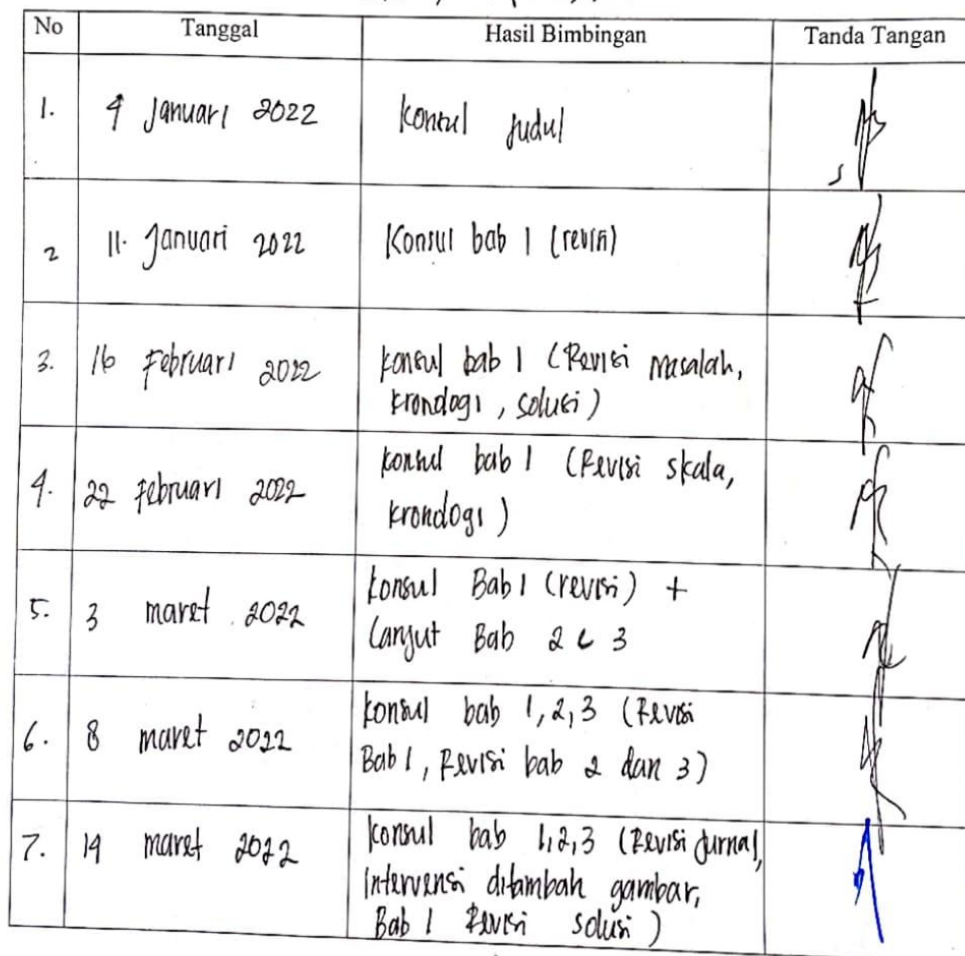 No Tanggal Hasil Bimbingan Tanda Tangan
1. 4 Januari 2022 Konsul Judul
2 11. Januari 2022 Konsul bab 1 (revisi)
3. 16 Februari 2022 Konsul bab 1 (Revisi masalah,
krondogi, solusi)
4. 22 Februari 2022 Konsul bab 1 (Revisi skala,
krondogi)
5. 3 maret 2022 Konsul Bab 1 (revisi) +
Lanjut Bab 2 & 3
6. 8 maret 2022 Konsul bab 1, 2, 3 (Revisi
Bab 1, Revisi bab 2 dan 3)
7. 14 maret 2022 Konsul bab 1,2,3 (Revisi Jurnal,
Intervensi ditambah gambar,
Bab 1 Revisi solusi)